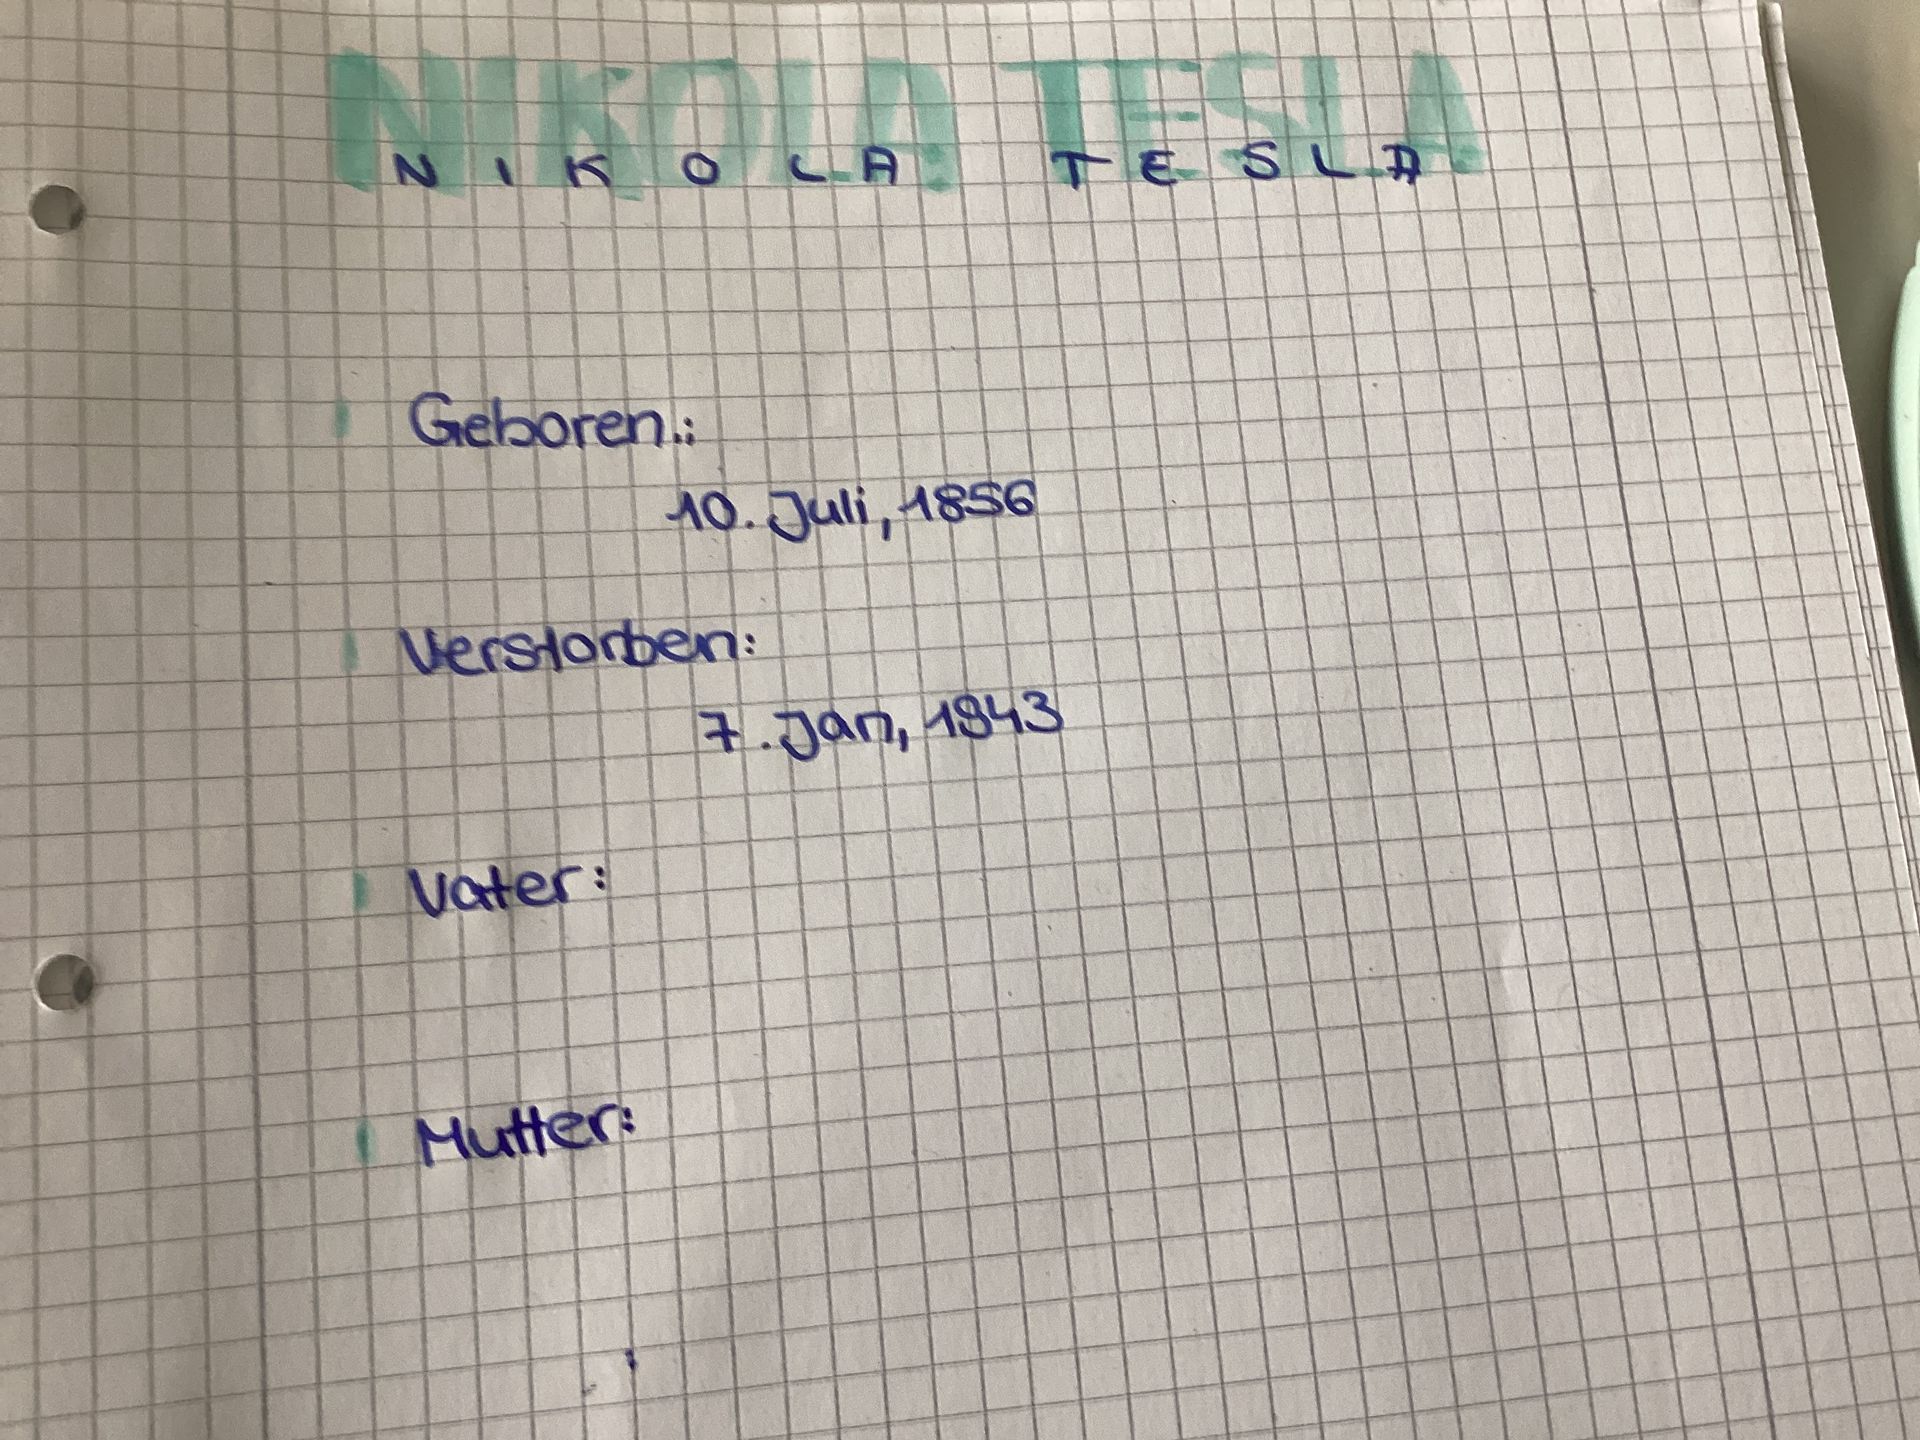 NIKOLA TESLA
NIKOLA TESLA
Geboren.:
10. Juli, 1856
Verstorben:
7. Jan, 1943
Vater:
Mutter: